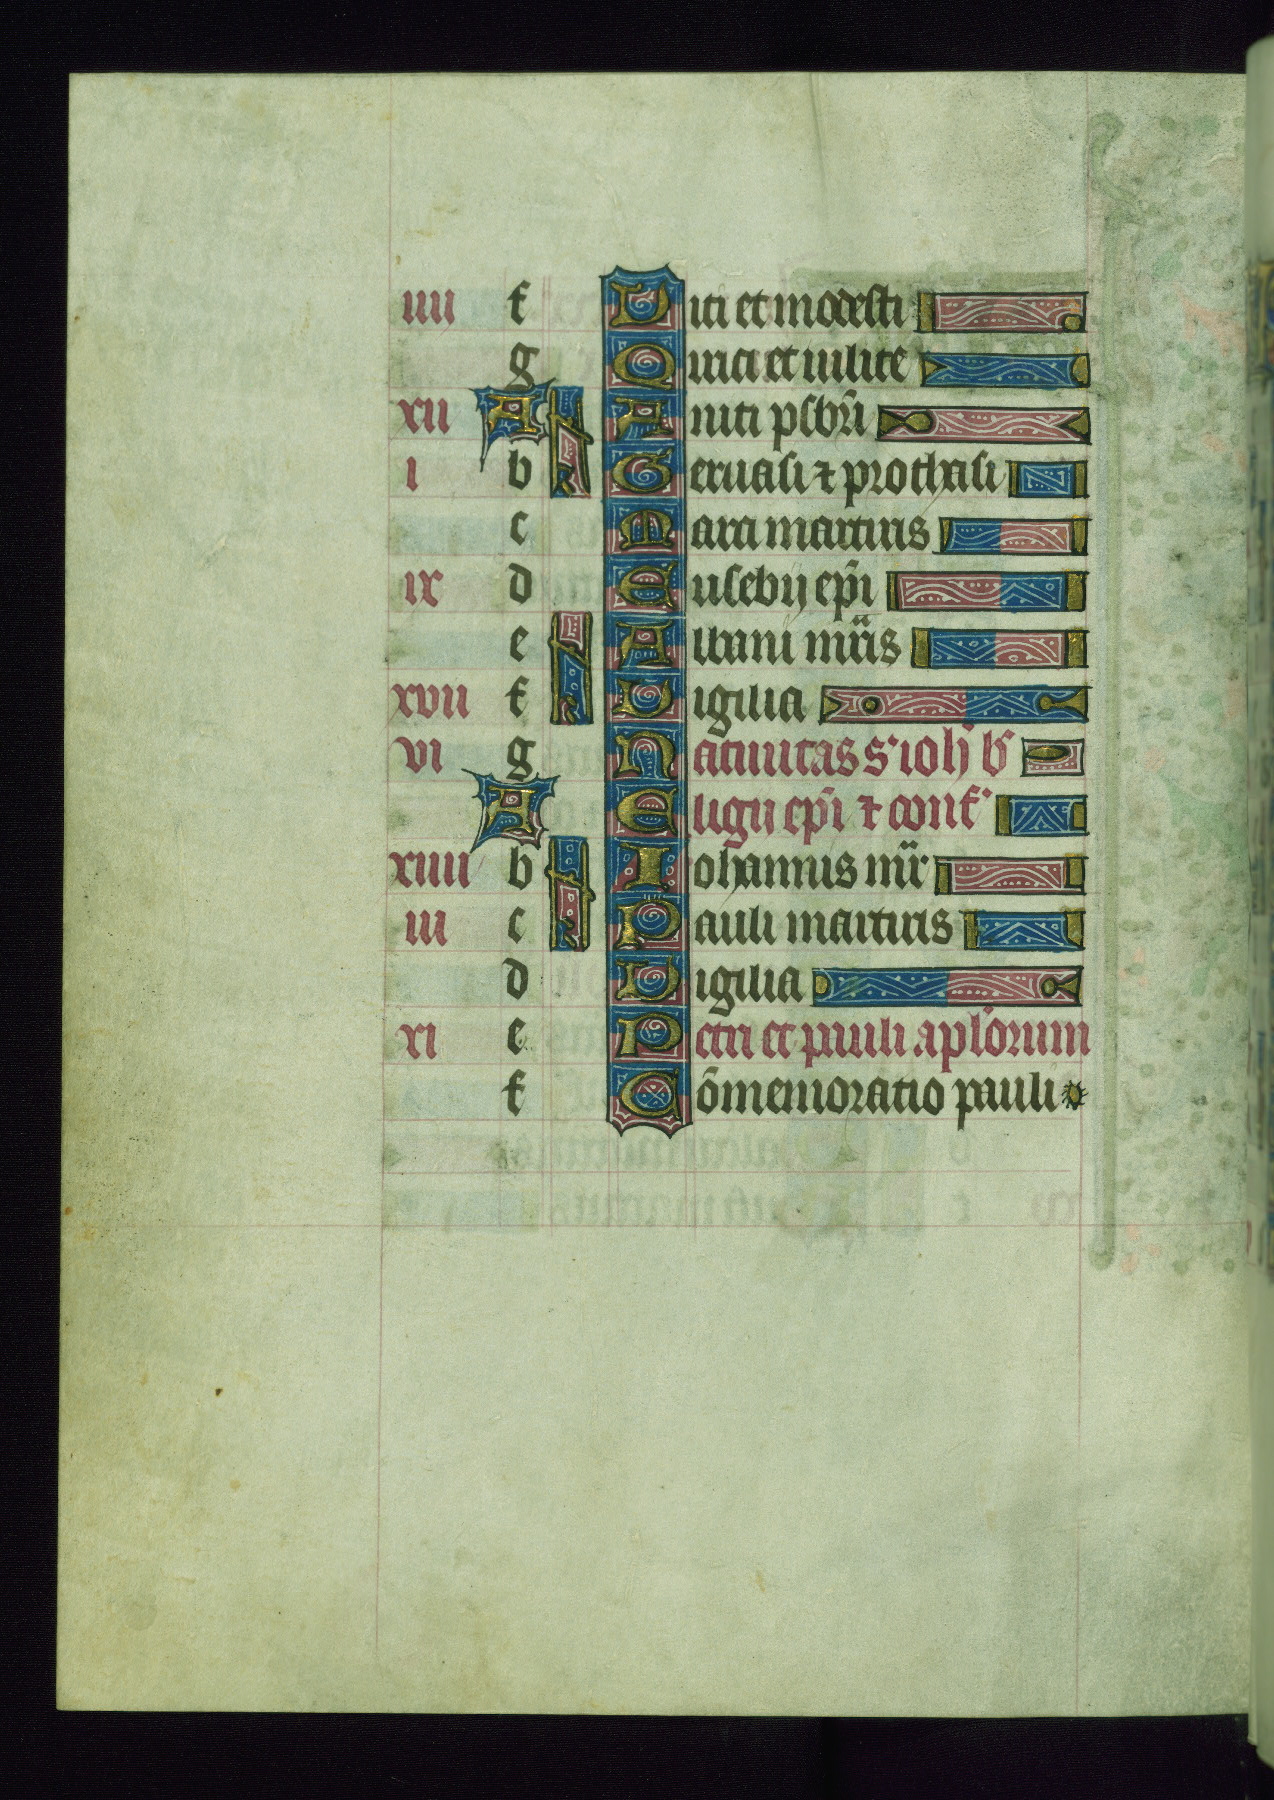 iiii f Viti et modesti
g Quirici et iulite
xii A kl Aniti p̃sbri
i b Geruasi ⁊ prothasi
c Marci martiris
ix d Eusebij ep̃i
e kl Albani mr̃is
xvii f Vigilia
vi g Natiuitas s' ioh' b'
A Eligii ep̃i ⁊ conf'
xiiii b kl Iohannis mr̃
iii c Pauli martiris
d Vigilia
xi e Petri et pauli apl'orum
f Cõmemoratio pauli